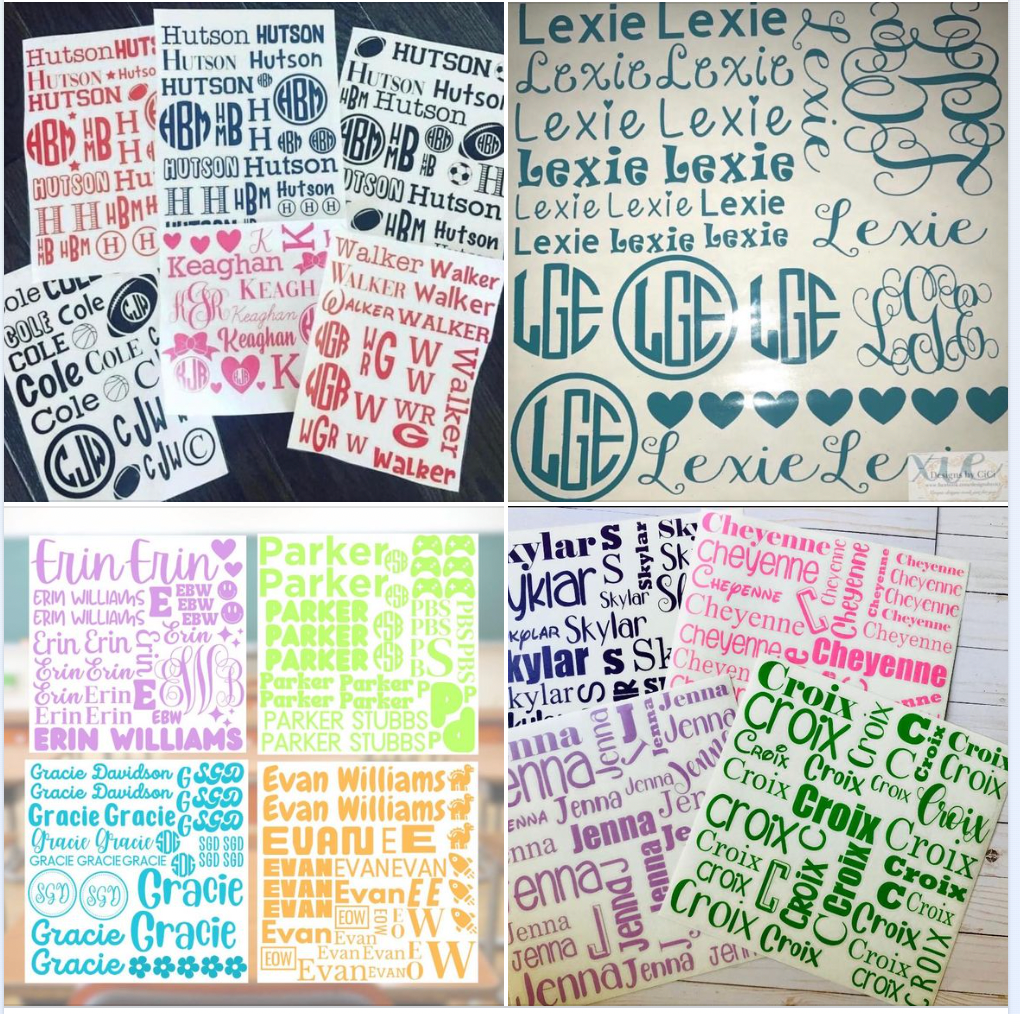 Hutson HUTS
HUTSON Hutso
HUTSON
HBM HMB H
H
HUTSON Hu
H H HBM H
HB HBM H H
Hutson HUTSON
HUTSON Hutson
HUTSON HBM
HBM HMB H HBM
H HBM HBM
HUTSON Hutson
H H HBM Hutson
H H H
HUTSON
HUTSON Hutso
HBM Hutson
HBM HB HBM
HUTSON H
HBM Hutson
ole COLE
COLE Cole CJW
COLE
Cole COLE C
Cole C
CJW CJW
CJW C
K K
Keaghan
KJR KEAGH
Keaghan
Keaghan
KJR KJR K
Walker Walker
WALKER Walker
WALKER WALKER
WGR WRG W
W
WGR W WR
G
WGR W Walker
Walker
Lexie Lexie
Lexie Lexie
Lexie Lexie
Lexie Lexie
Lexie Lexie Lexie
Lexie Lexie Lexie
Lexie
Lexie
LGE LGE LGE LGE
LGE
Lexie Lexie
Designs by CiCi
Erin Erin
ERIN WILLIAMS E EBW
ERIN WILLIAMS EBW
EBW
Erin Erin Erin
Erin Erin Erin EWB
Erin Erin E
Erin Erin EBW
ERIN WILLIAMS
Parker PSB
Parker PSB
PARKER PBS
PARKER PSB PBS
PARKER PSB PBS
Parker Parker P
Parker Parker P
PARKER STUBBS P
PARKER STUBBS P
PBSPBS
Gracie Davidson G SGD
Gracie Davidson SGD
Gracie Gracie G SGD
Gracie Gracie SDG SGD SGD
GRACIE GRACIE GRACIE SDG SGD SGD
SGD SGD Gracie
Gracie Gracie
Gracie
Evan Williams
Evan Williams
EVAN E E
EVAN EVAN EVAN
EVAN Evan E E
EVAN EOW W
Evan Evan W
EOW Evan Evan
Evan EVAN
kylar S Skylar Sky
kylar S Sky
Skylar
SKYLAR Skylar
kylar S Sk
kylar S
Cheyenne
Cheyenne Cheyenne
CHEYENNE Cheyenne
Cheyenne C Cheyenne
Cheyenne Cheyenne
Cheyen Cheyenne
Cheyenne
Cheyenne
Cheyenne
Cheyenne
enne
enna J Jenna Jenna
Jenna
enna Jenna Jenna
ENNA Jenna Jer
enna Jenna Je
enna Jenna
Jenna J Jenna
Jenna
Jenna Jenna
Croix Croix C Croix
Croix Croix Croix
CROIX Croix Croix C Croix
Croix Croix Croix
Croix Croix Croix
Croix C Croix
Croix C Croix C Croix
Croix Croix Croix
Croix Croix
Croix CROIX